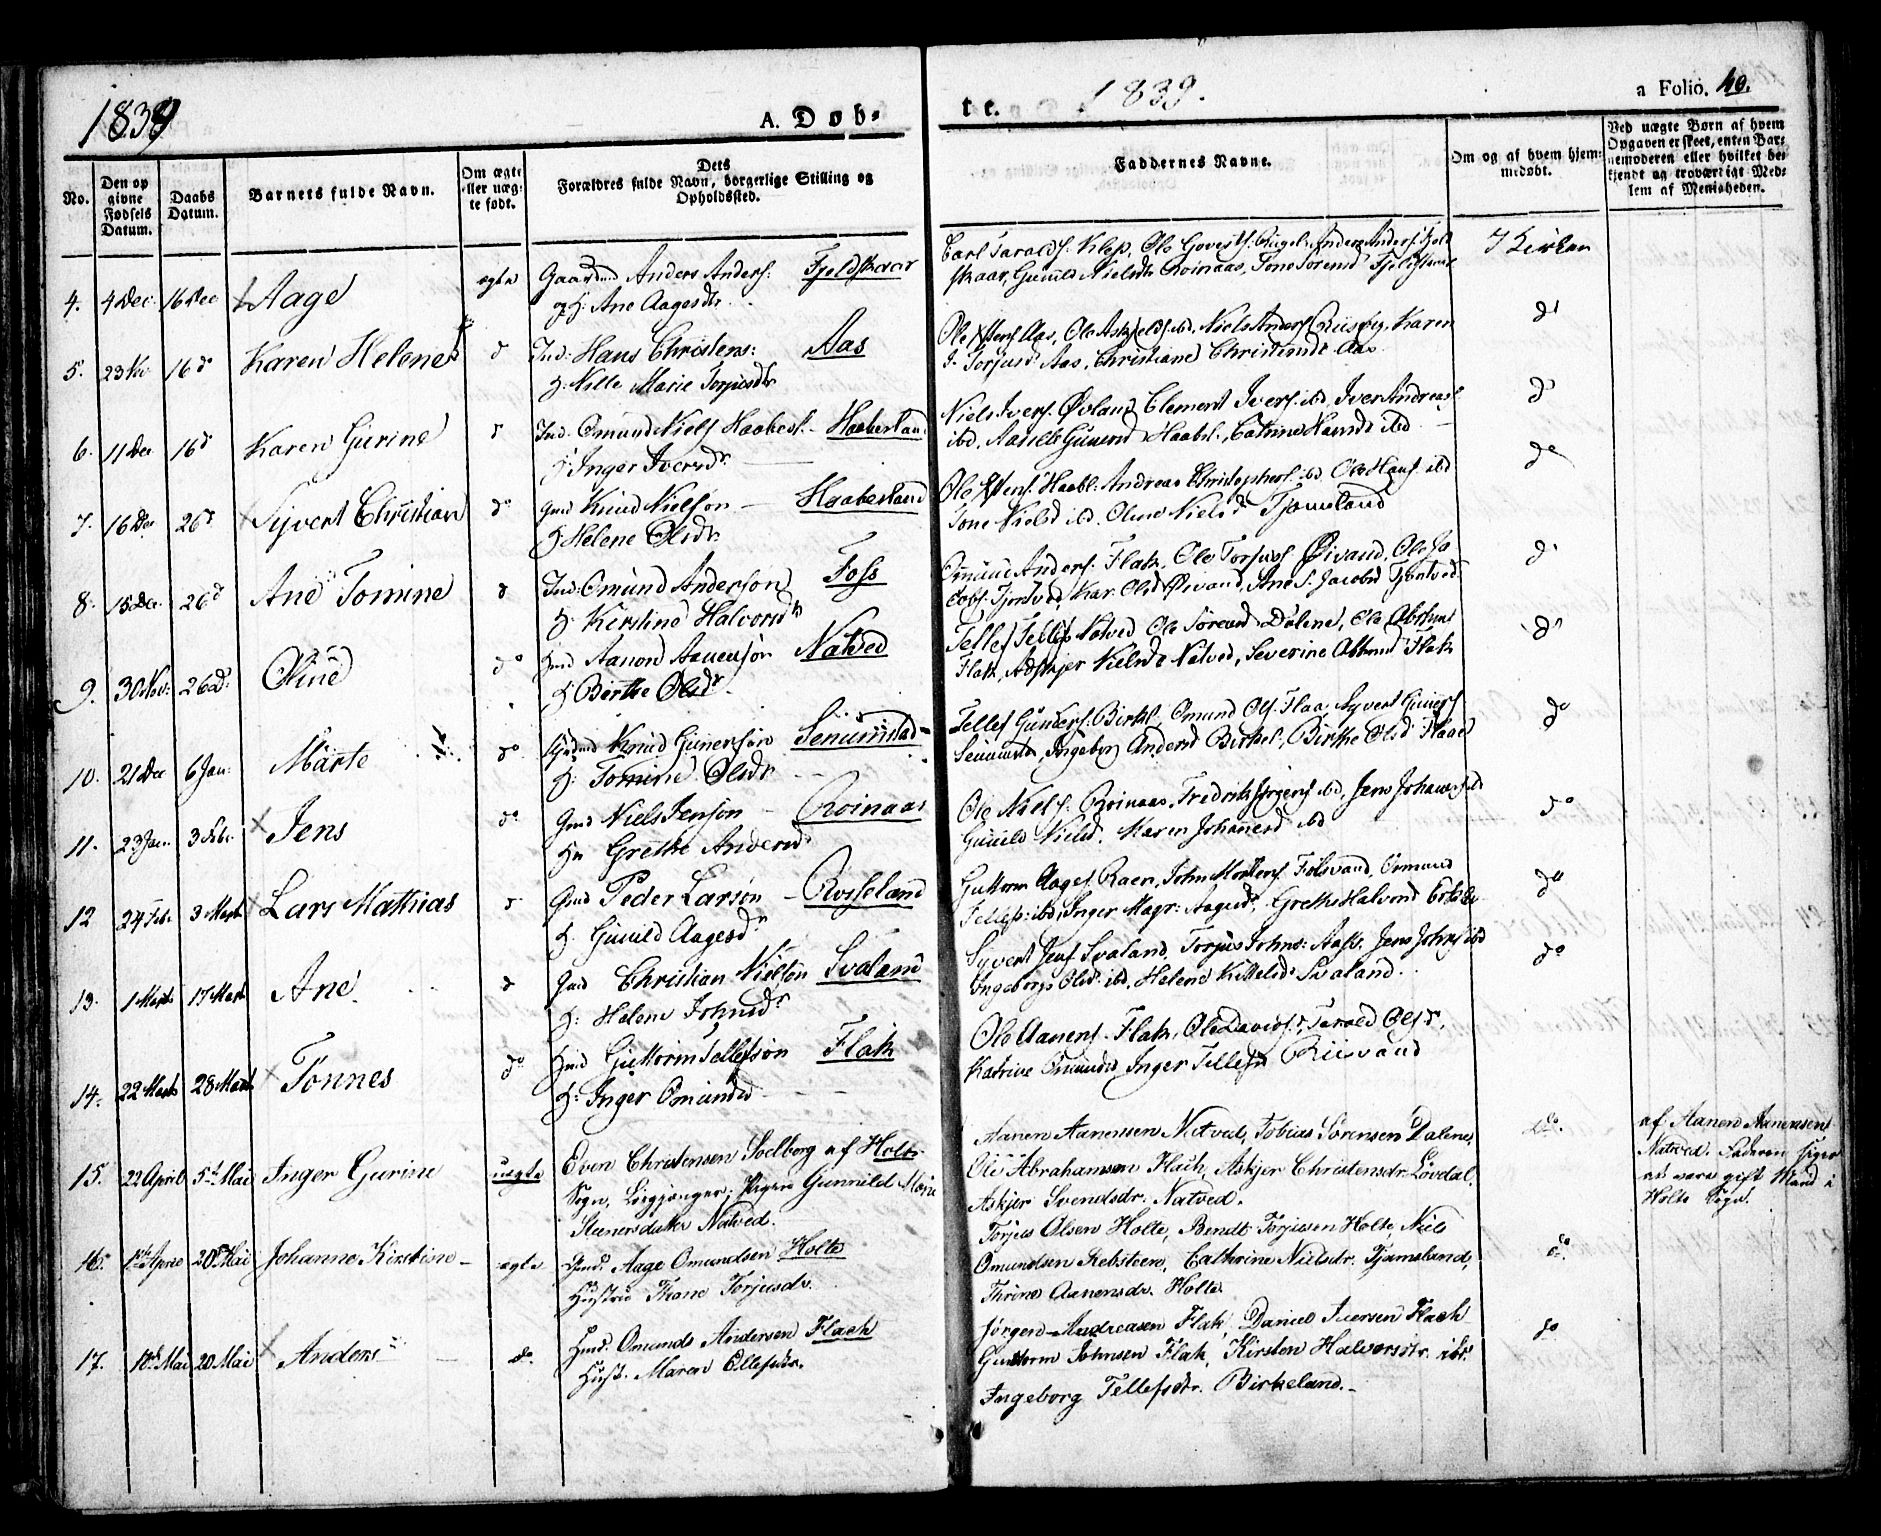 1839
A. Døb-
te.
1839.
a Folio. 40.
No.
Den op
givne
Fødsels
Datum.
Daabs
Datum.
Barnets fulde Navn.
Om ægte
eller uæg-
te født.
Dets
Forældres fulde Navn, borgerlige Stilling og
Opholdssted.
Faddernes Navne.
Om og af hvem hjem-
medøbt.
Ved uægte Børn af hvem
Opgaven er skeet, enten Bar-
nemoderen eller hvilket be-
kjendt og troværdigt Med-
lem af Menigheden.
4. 4 Dec. 16 Dec Aage ægte Gaardmd Anders Anders: Fjeldskaar
og H: Ane Aagesdtr.
Carl Taralds: Klep, Ole Govert Anders Anders: Fjeld
skaar, Gunild Nielsdtr Roinaas, Tone Fjeldskaar
I Kirken
5. 23 Nov 16 d Karen Helene d Ind: Hans Christens: Aas
H: Nille Marie Torjusdtr
Ole Aas, Ole ibd, Niels Anders Karen
Torjusd Aas, Christiane Christensd Aas
do
6. 11 Dec 16 d Karen Gurine d Ind. Omund Niels Haabesl. Haabesland
H Inger Iversdr.
Niels Ivers. Øvland Clement Ivers. ibd, Iver Andreas
ibd. Gunersd Haabsl., Catrine Hansd ibd
d
7. 16 Dec 26 d Syvert Christian do Gmd Knud Nielson Haabesland
H Helene Olsdr.
Ole Haabl: Andreas Christophers. ibd Ole Hans. ibd
Tone Nielsd ibd. Oline Nielsd Tjomsland
do
8. 15 Dec. 26 d Ane Tomine d Ind: Omund Anderson Foss
H: Kirstine Halvorsd
Omund Anders. Flak, Ole Torjus Øivand, Ole Ja
cobs. Tjentved, Kar. Olsd Øivand, Ane S. Jacobsd Tjentved
d
9. 30 Nov. 26 d. Oline do Hmd Aanon Aanenson Natved
H Berthe Olsdr.
Tellef Tellefs Natved Ole Sörensd Dalene, Ole
Flak, Askjer Nielsd Natved, Severine Flak
d
10. 21 Dec 6 Jan. Märte do Knud Gunerson Senumstad
H: Tomine Olsdr
Tellef Guners: Birkl, Omund Ols. Flaa, Syvert Guners
Senumst, Ingeborg Andersd Birkel, Birthe Olsd Flaa
do
11. 23 Jan. 3 Febr. Jens do Gmd Niels Jenson Roinaas
Hu Grethe Andersd
Ole Niels: Roinaas, Fredrik Jörgens ibd, Jens Johanes ibd
Gunild Nielsd. Karen Johannesd ibd
do
12 24 Febr. 3 Marts Lars Mathias d Gmd Peder Larson Rosseland
H. Gunild Aagesdr
Guttorm Aages Raen, John Mortens Fidsvand, Omund
Tellefs: ibd, Inger Margr: Aagesd, Grethe Halvorsd
do
13. 1 Marts 17 Marts Ane d Gmd Christian Nielson Svaland
H: Helene Johnsdr
Syvert Jens Svaland, Torjus Johns: Aass. Jens Johns ibd
Ingeborg Olsd: ibd, Helene Kittelsd Svaland.
do
14. 22 Marts 28 Marts Tönnes do Hmd Guttorm Tellefson Flak
H: Inger Omundsd
Ole Aanens. Flak, Ole Davids:, Tarald Ols
Katrine Omundsd Inger Tellefsd Riisvand
15. 22 April 5te Mai Inger Gurine uægte Even Christensen Soelberg af Holts
Sogn, Lægsjanger; Pigen Gunnild Marie
Steenersdatter Natved.
Aanen Aanensen Natved, Tobias Sörensen Dalene,
Ole Abrahamsen Flach, Askjer Christensdr. Lövdal,
Askjer Svendsdr. Natved.
do.
af Aanen Aanensen
Natved. Faderen siges
at være gift Mand i
Holts Sogn.
16. April 20de Mai Johanne Kirstine ægte Gmd. Aage Omundsen Holte
Hustrue Thone Torjusdr.
Torjus Olsen Holte, Bendt Torjusen Holte, Niels
Omundsen Rebsteen, Cathrine Nielsdr. Tjomsland,
Thrine Aanensdr. Holte.
do.
17. Mai 20 Mai Anders do. Hmd. Omund Andersen Flach
Hust. Maren Ellefsdr.
Jörgen Andreasen Flak, Daniel Iversen Flach
Guttorm Johnsen Flak, Kirsten Halvorsdtr. ibd.
Ingeborg Tellefsdtr. Birkeland.
do